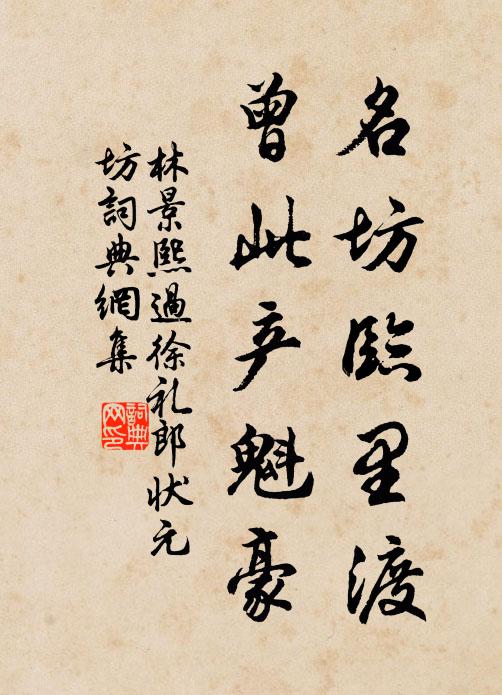 名坊臨里渡
曾此产魁豪
林景熙過徐礼郎状元
坊詞典網集
詞典
网印